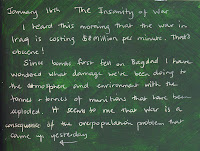 January 16th The Insanity of War
I heard this morning that the war in
Iraq is costing $ million per minute. That's
obscene!
Since bombs first fell on Bagdad I have
wondered what damage we've been doing to
the atmosphere and environment with the
tonnes + tonnes of munitions that have been
exploded. It seems to me that war is a
consequence of the overpopulation problem that
came up yesterday